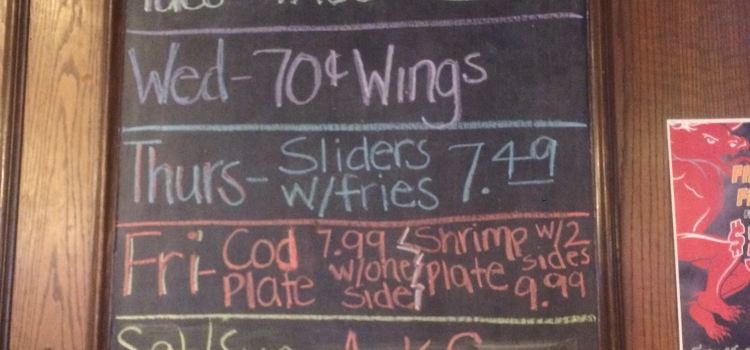 Wed- 70¢ Wings
Thurs- Sliders w/fries 7.49
Fri- Cod Plate 7.99 w/one side / Shrimp plate w/2 sides 9.99